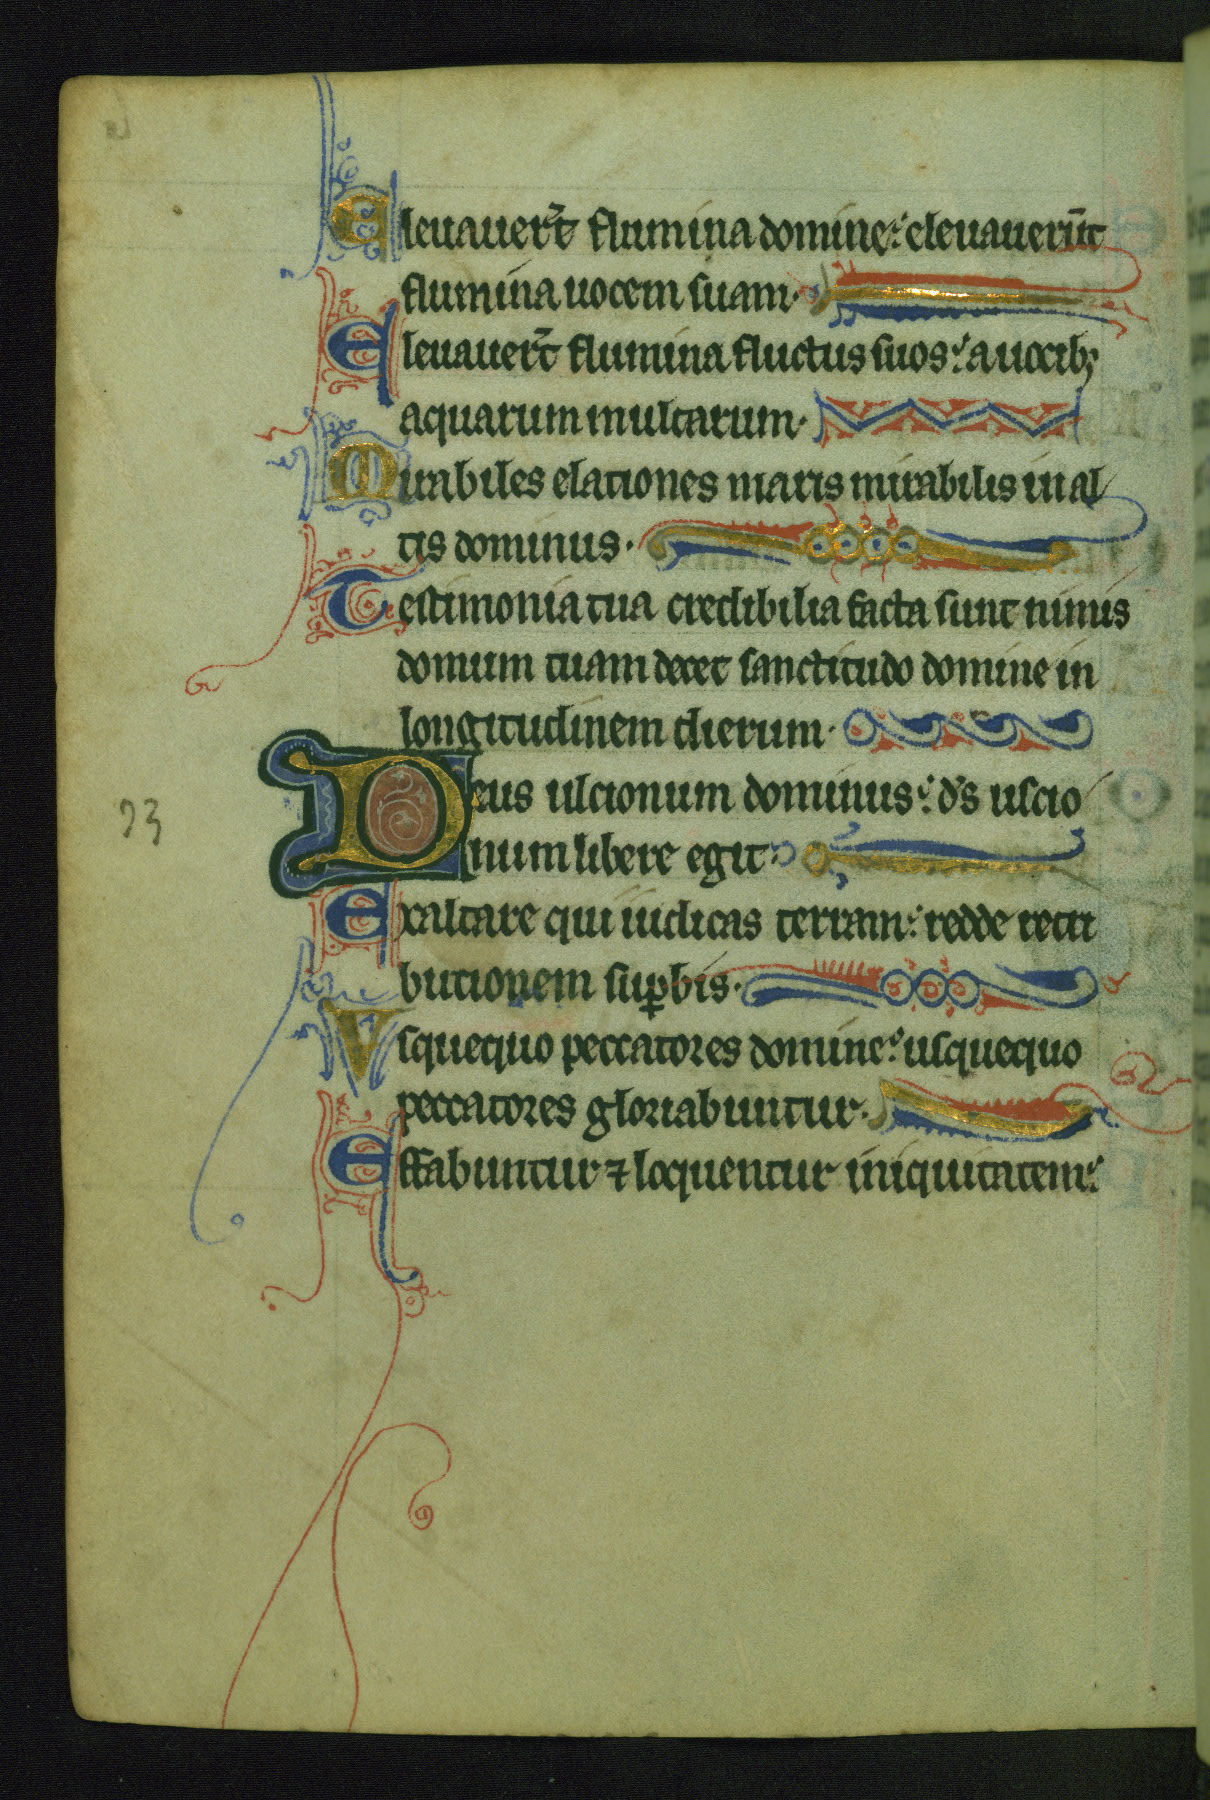 Eleuauer̃t flumina domine: eleuauerūt
flumina uocem suam·
Eleuauer̃t flumina fluctus suos: a uocib;
aquarum multarum·
Mirabiles elationes maris mirabilis in al
tis dominus·
Testimonia tua credibilia facta sunt nimis
domum tuam decet sanctitudo domine in
longitudinem dierum·
Deus ulcionum dominus: d̄s ulcio
num libere egit·
23
Exaltare qui iudicas terram: redde retri
bucionem suꝑbis·
Vsquequo peccatores domine: usquequo
peccatores gloriabuntur·
Effabuntur ⁊ loquentur iniquitatem: